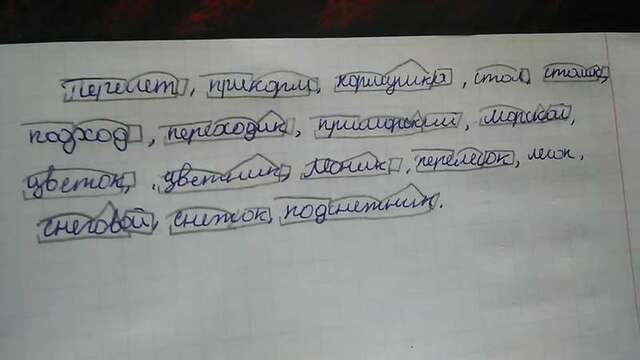 Перелет, прикорм, кормушка, стол, столик,
подход, переходник, приморский, морской,
цветок, цветник, перелесок,
снеговой, снежок, подснежник.